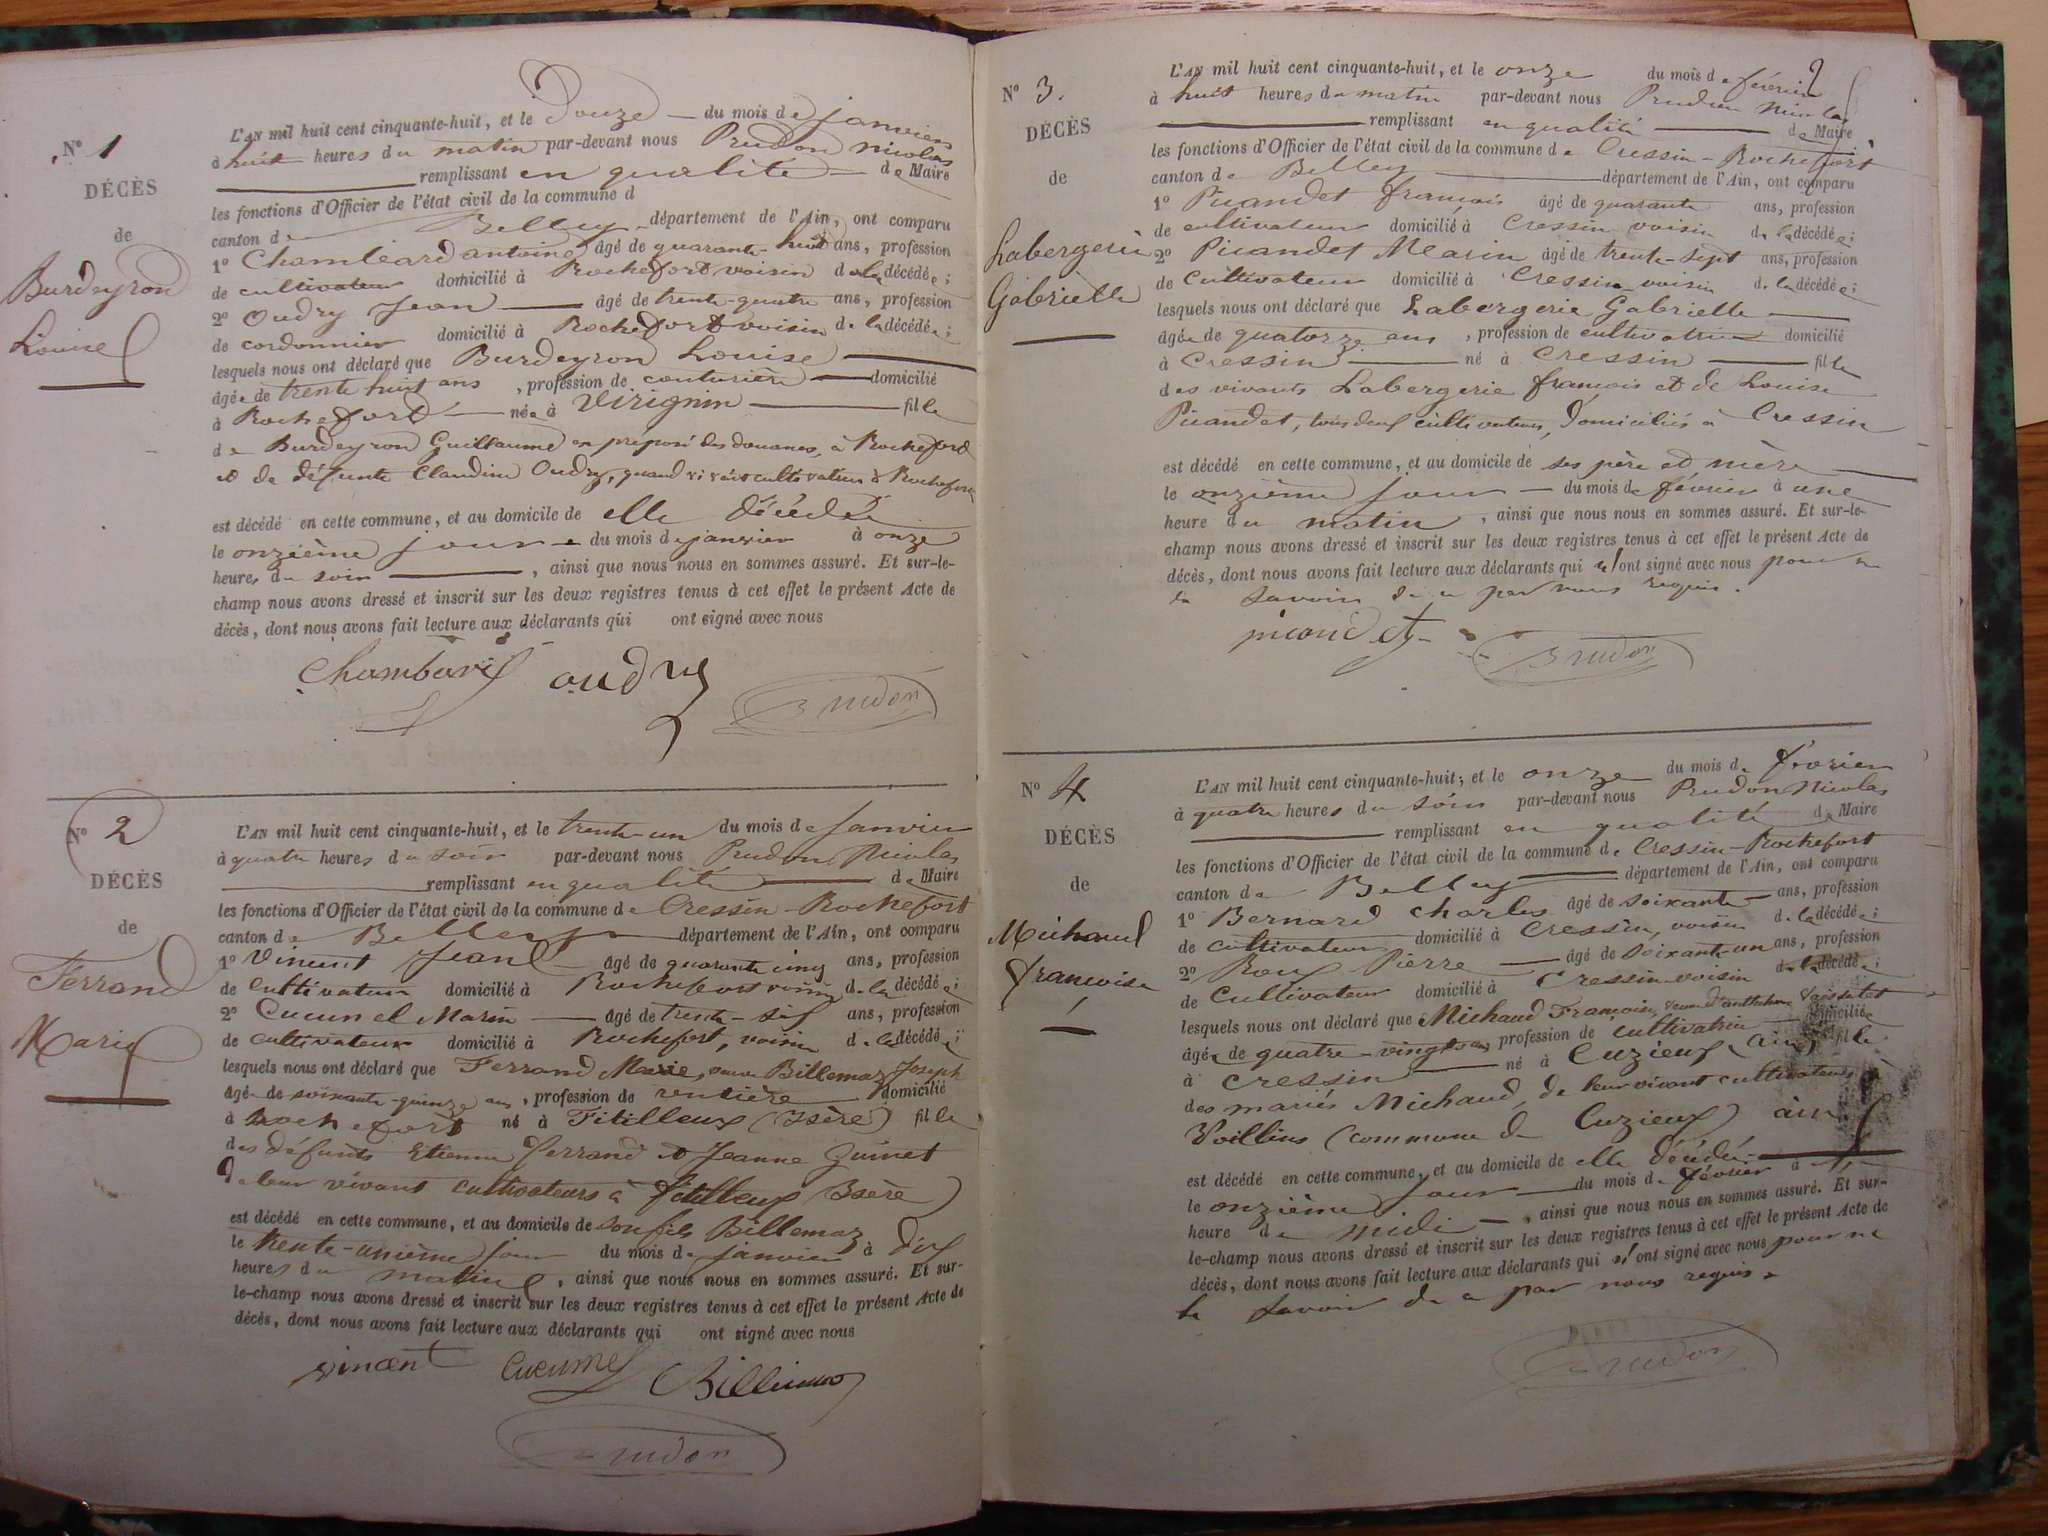 N° 1
DÉCÈS
de
Burdeyron
Louise
L'AN mil huit cent cinquante-huit, et le Douze du mois de janvier
à huit heures du matin par-devant nous Prudon Nicolas
remplissant en qualité de Maire
les fonctions d'Officier de l'état civil de la commune d
canton de Belley département de l'Ain, ont comparu
1° antoine âgé de quarante-huit ans, profession
de cultivateur domicilié à Rochefort voisin de la décédée;
2° Oudry Jean âgé de trente-quatre ans, profession
de cordonnier domicilié à Rochefort voisin de la décédée;
lesquels nous ont déclaré que Burdeyron Louise
âgée de trente huit ans, profession de couturière domicilié
à Rochefort née à Virignin fille
de Burdeyron Guillaume ex préposé des douanes, à Rochefort
et de défunte Claudine Oudry, quand vivait cultivateur à Rochefort
est décédé en cette commune, et au domicile de elle décédée
le onzième jour du mois de janvier à onze
heures du soir, ainsi que nous nous en sommes assuré. Et sur-le-
champ nous avons dressé et inscrit sur les deux registres tenus à cet effet le présent Acte de
décès, dont nous avons fait lecture aux déclarants qui ont signé avec nous
oudry Prudon
N° 2
DÉCÈS
de
Ferrand
Marie
L'AN mil huit cent cinquante-huit, et le trente-un du mois de Janvier
à quatre heures du soir par-devant nous Prudon Nicolas
remplissant en qualité de Maire
les fonctions d'Officier de l'état civil de la commune de Cressin-Rochefort
canton de Belley département de l'Ain, ont comparu
1° Vincent Jean âgé de quarante cinq ans, profession
de cultivateur domicilié à Rochefort voisin de la décédée;
2° Marin âgé de trente-six ans, profession
de cultivateur domicilié à Rochefort, voisin de la décédée;
lesquels nous ont déclaré que Ferrand Marie, veuve Billemaz Joseph
âgée de soixante-quinze ans, profession de rentière domicilié
à Rochefort né à Fitilleux (Isère) fille
des défunts Etienne Ferrand et Jeanne Guinet
de leur vivant cultivateurs à fitilleux (Isère)
est décédé en cette commune, et au domicile de son fils Billemaz
le trente-unième jour du mois de janvier à dix
heures du matin, ainsi que nous nous en sommes assuré. Et sur-
le-champ nous avons dressé et inscrit sur les deux registres tenus à cet effet le présent Acte de
décès, dont nous avons fait lecture aux déclarants qui ont signé avec nous
vincent Billemaz
Prudon
N° 3.
DÉCÈS
de
Labergerie
Gabrielle
L'AN mil huit cent cinquante-huit, et le onze du mois de février
à huit heures du matin par-devant nous Prudon Nicolas
remplissant en qualité de Maire
les fonctions d'Officier de l'état civil de la commune de Cressin-Rochefort
canton de Belley département de l'Ain, ont comparu
1° Picandet françois âgé de quarante ans, profession
de cultivateur domicilié à Cressin voisin de la décédée;
2° Picandet Marin âgé de trente-sept ans, profession
de cultivateur domicilié à Cressin voisin de la décédée;
lesquels nous ont déclaré que Labergerie Gabrielle
âgée de quatorze ans, profession de cultivatrice domicilié
à Cressin né à Cressin fille
des vivants Labergerie françois et de Louise
Picandet, tous deux cultivateurs, domiciliés à Cressin
est décédé en cette commune, et au domicile de ses père et mère
le onzième jour du mois de février à une
heure du matin, ainsi que nous nous en sommes assuré. Et sur-le-
champ nous avons dressé et inscrit sur les deux registres tenus à cet effet le présent Acte de
décès, dont nous avons fait lecture aux déclarants qui n'ont signé avec nous pour ne
le savoir de ce par nous requis.
picandet Prudon
N° 4
DÉCÈS
de
Michaud
françoise
L'AN mil huit cent cinquante-huit, et le onze du mois de février
à quatre heures du soir par-devant nous Prudon Nicolas
remplissant en qualité de Maire
les fonctions d'Officier de l'état civil de la commune de Cressin-Rochefort
canton de Belley département de l'Ain, ont comparu
1° Bernard Charles âgé de soixante ans, profession
de cultivateur domicilié à Cressin, voisin de la décédée;
2° Roux Pierre âgé de soixante-un ans, profession
de cultivateur domicilié à Cressin voisin de la décédée;
lesquels nous ont déclaré que Michaud Françoise, veuve
âgée de quatre-vingts ans, profession de cultivatrice domicilié
à Cressin né à Cuzieux (ain) fille
des mariés Michaud, de leur vivant cultivateurs à
Voillins (commune de Cuzieux) ain
est décédé en cette commune, et au domicile de elle décédée
le onzième jour du mois de février à
heure de midi, ainsi que nous nous en sommes assuré. Et sur-
le-champ nous avons dressé et inscrit sur les deux registres tenus à cet effet le présent Acte de
décès, dont nous avons fait lecture aux déclarants qui n'ont signé avec nous pour ne
le savoir de ce par nous requis.
Prudon